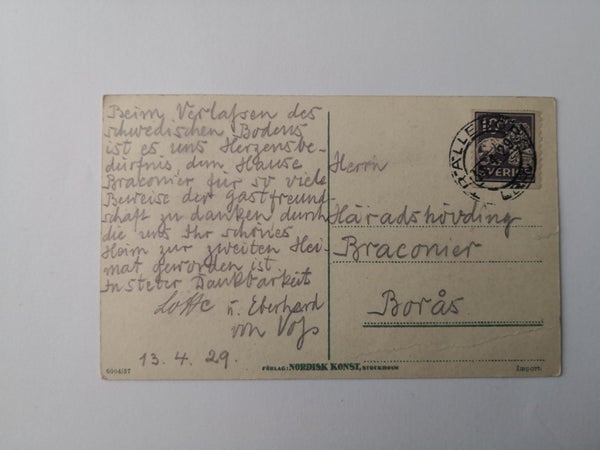 Beim Verlaßen des
schwedischen Bodens
ist es uns Herzensbe-
dürfnis dem Hause
Braconier für so viele
Beweise der Gastfreund-
schaft zu danken durch
die uns Ihr schönes
Heim zur zweiten Hei-
mat geworden ist.
In steter Dankbarkeit
Lotte
u. Eberhard
von Voß
13. 4. 29.
Herrn
Häradshövding
Braconier
Borås
SVERIGE
6064/37
FÖRLAG: NORDISK KONST, STOCKHOLM
Import.